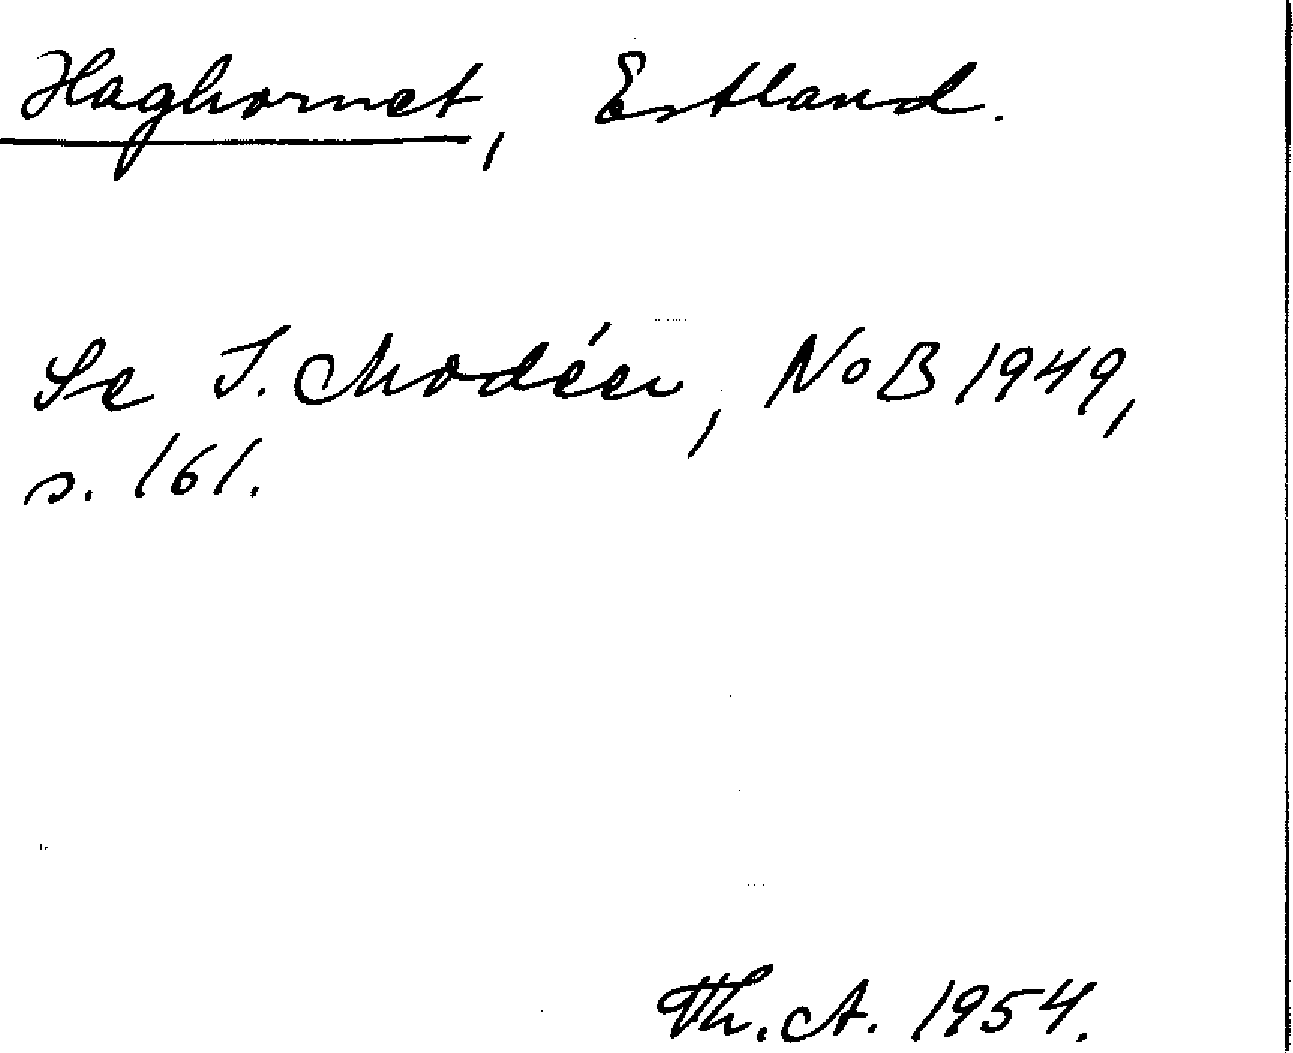 Haghornet, Estland.
Se I. Modéer, NoB 1949,
s. 161.
Th. A. 1954.